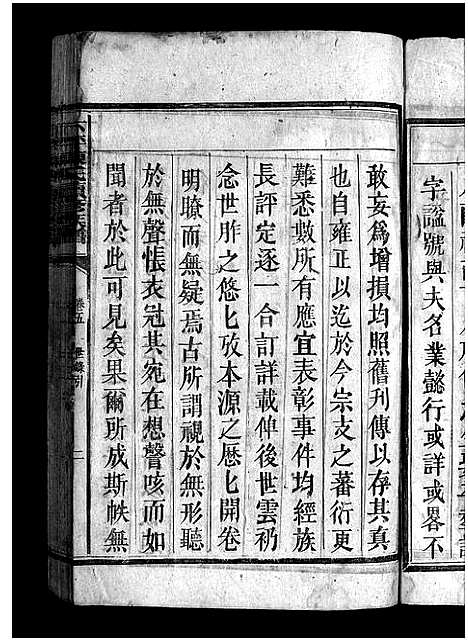 字諡號與夫名業懿行或詳或畧不
敢妄爲增損均照舊刊傳以存其眞
也自雍正以迄於今宗支之蕃衍更
難悉數所有應宜表彰事件均經族
長評定逐一合訂詳載俾後世雲礽
念世胙之悠匕攷本源之歷匕開卷
明瞭而無疑焉古所謂視於無形聽
於無聲悵衣冠其宛在想謦咳而如
聞者於此可見矣果爾所成斯帙無
卷五
二